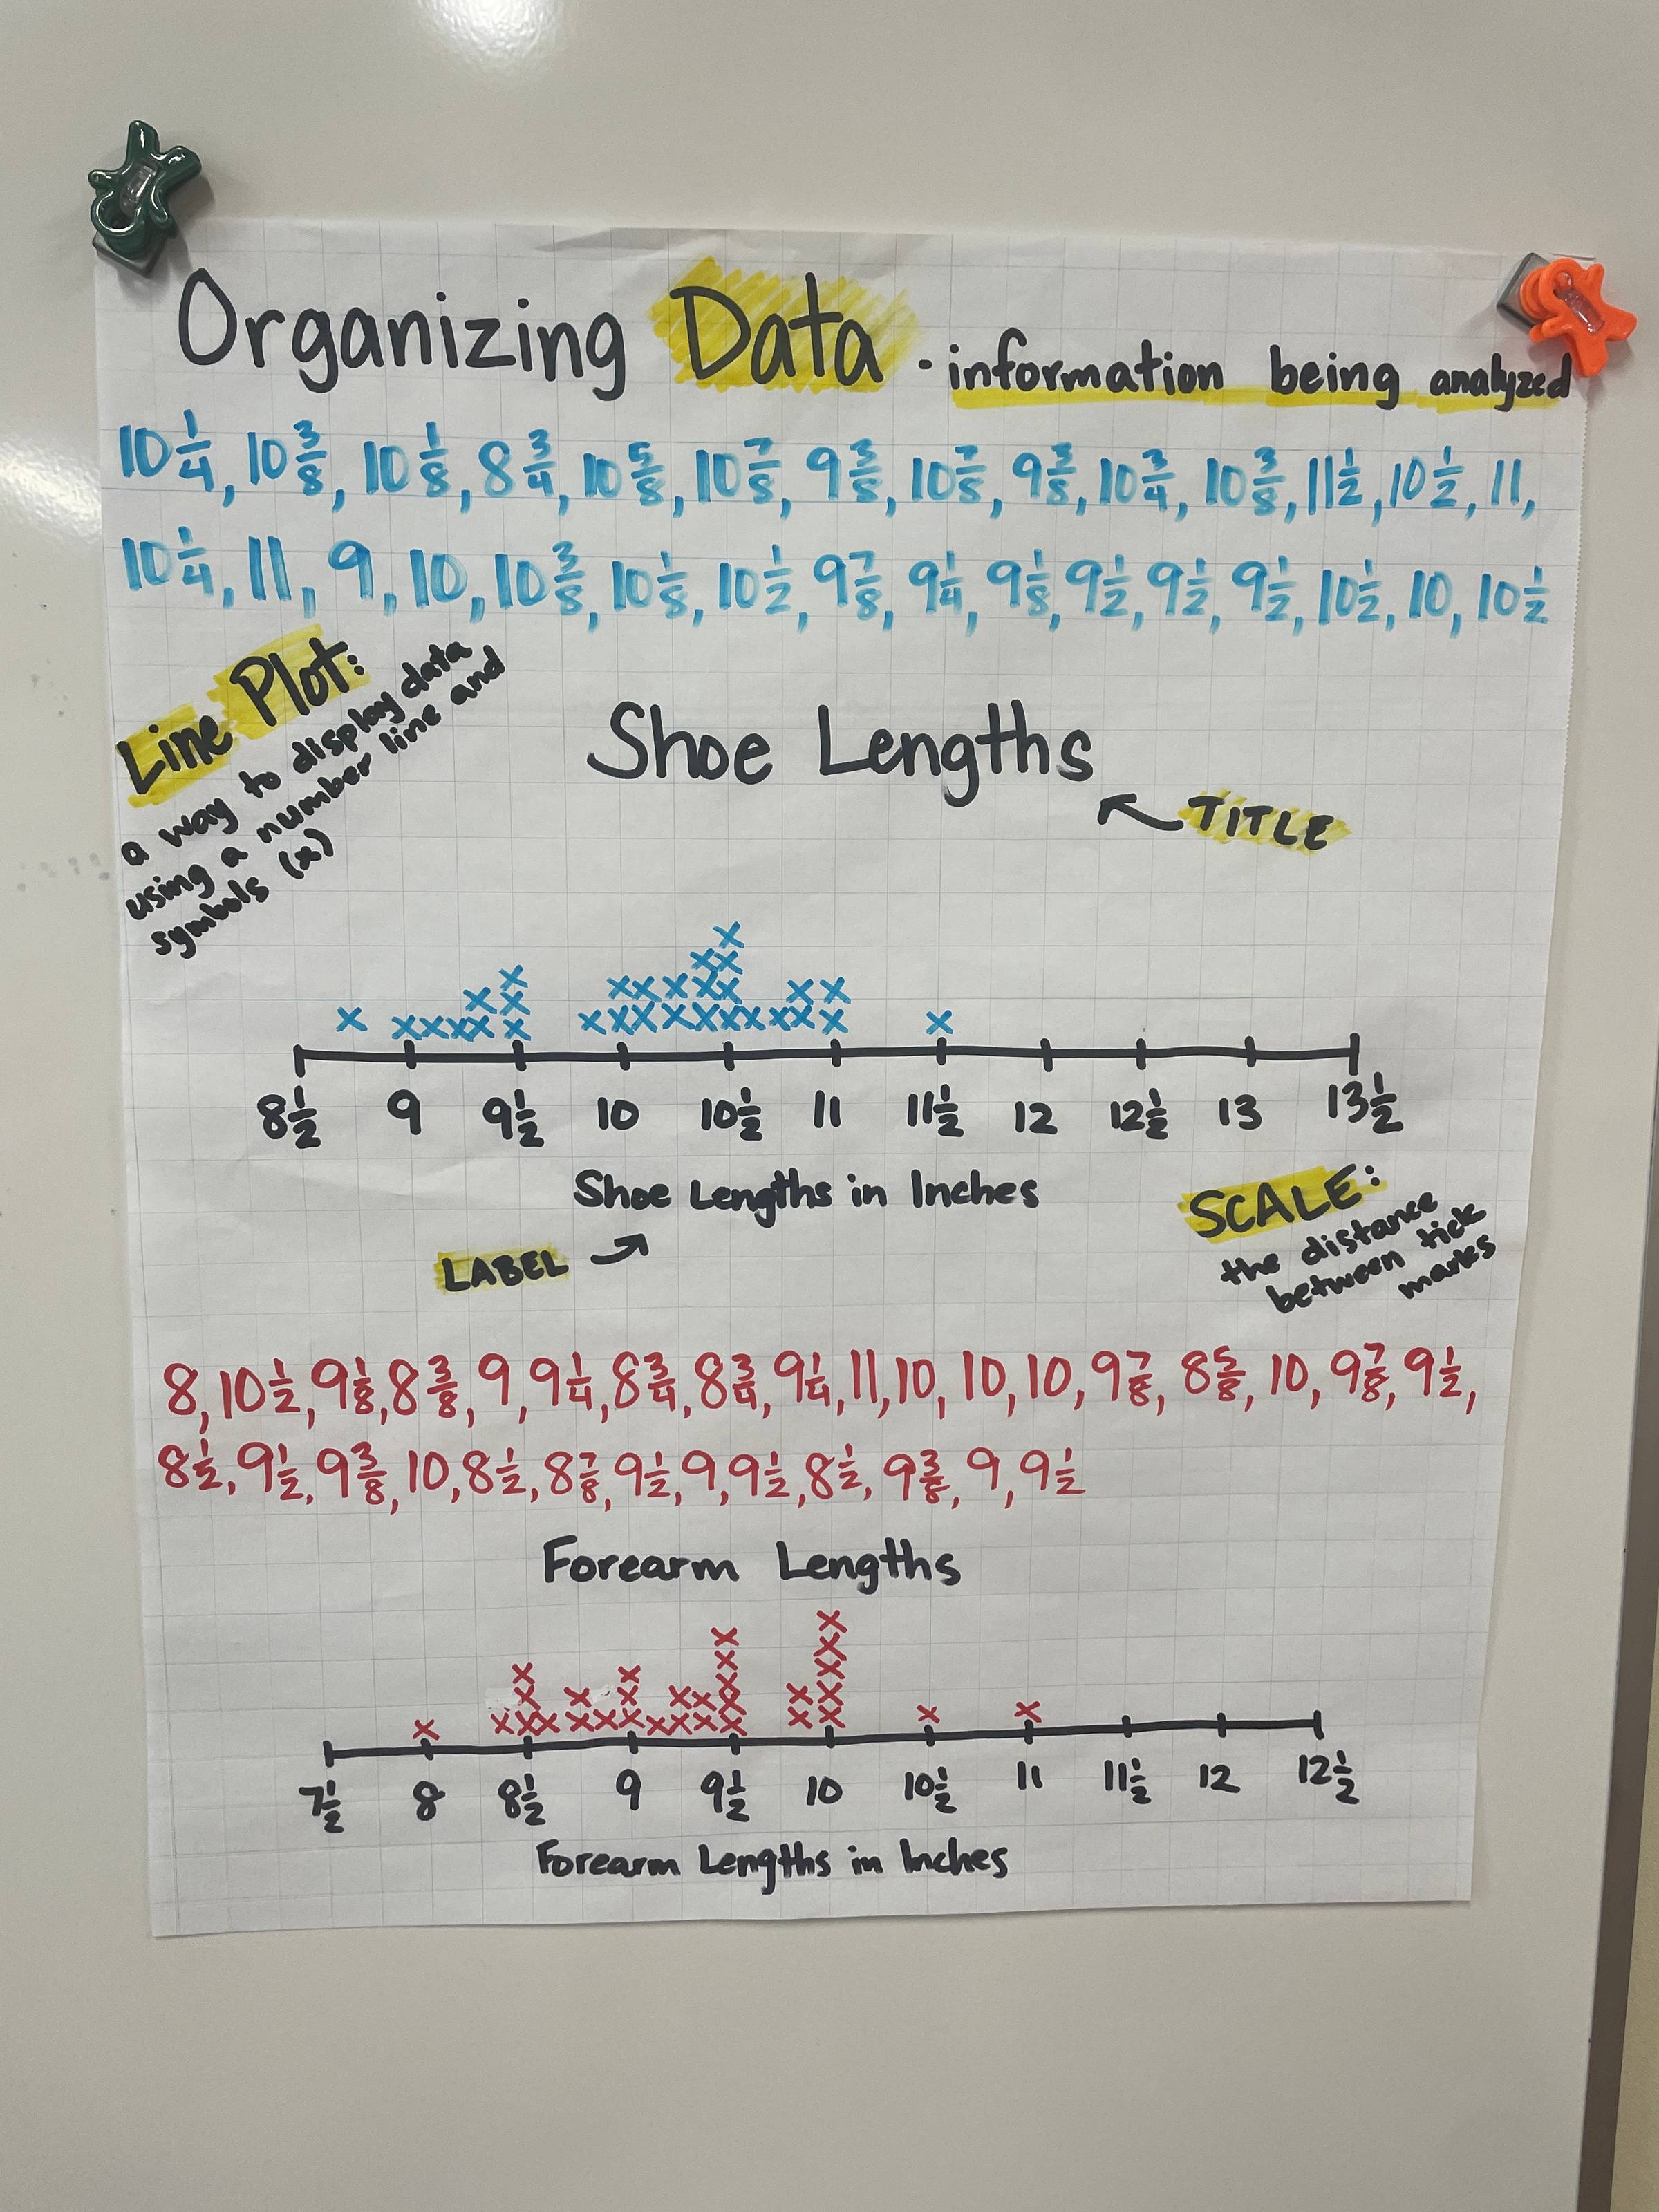 Organizing Data - information being analyzed
10 1/4, 10 3/8, 10 1/8, 8 3/4, 10 5/8, 10 7/8, 9 3/8, 10 7/8, 9 3/8, 10 3/4, 10 3/8, 11 1/2, 10 1/2, 11,
10 1/4, 11, 9, 10, 10 3/8, 10 1/8, 10 1/2, 9 7/8, 9 1/4, 9 1/8, 9 1/2, 9 1/2, 9 1/2, 10 1/2, 10, 10 1/2
Line Plot:
a way to display data
using a number line and
symbols (x)
Shoe Lengths
TITLE
8 1/2 9 9 1/2 10 10 1/2 11 11 1/2 12 12 1/2 13 13 1/2
Shoe Lengths in Inches
LABEL
SCALE:
the distance
between tick
marks
8, 10 1/2, 9 1/8, 8 3/8, 9, 9 1/4, 8 3/4, 8 3/4, 9 1/4, 11, 10, 10, 10, 9 7/8, 8 5/8, 10, 9 7/8, 9 1/2,
8 1/2, 9 1/2, 9 3/8, 10, 8 1/2, 8 7/8, 9 1/2, 9, 9 1/2, 8 1/2, 9 3/8, 9, 9 1/2
Forearm Lengths
7 1/2 8 8 1/2 9 9 1/2 10 10 1/2 11 11 1/2 12 12 1/2
Forearm Lengths in Inches